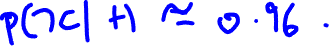 p(¬c|+) ≃ 0.96.